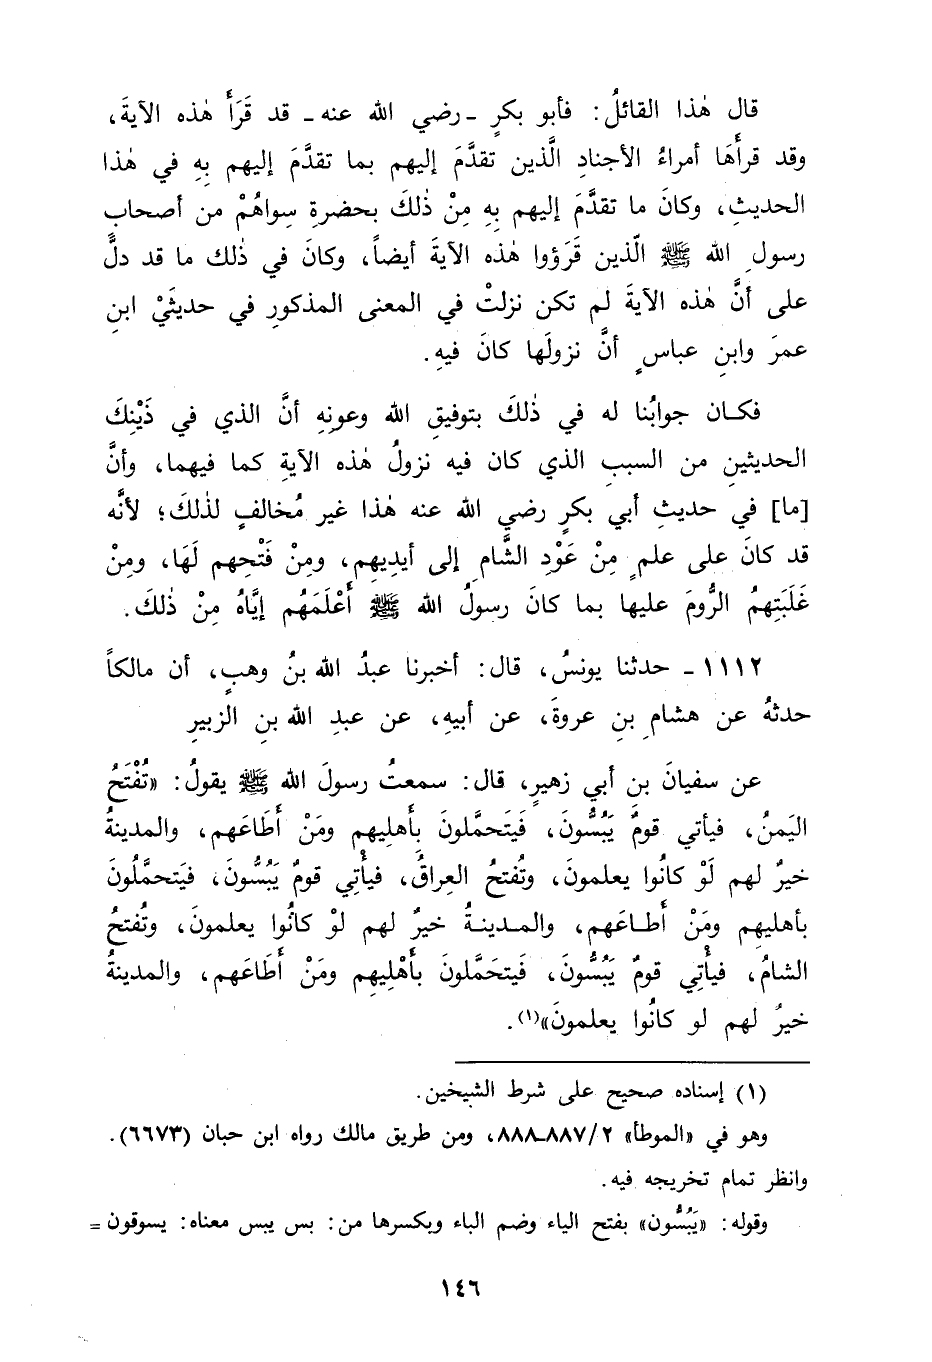 قال هٰذا القائلُ: فأبو بكرٍ ـ رضي الله عنه ـ قد قَرَأَ هٰذه الآيةَ،
وقد قرأَهَا أمراءُ الأجنادِ الَّذين تقدَّمَ إليهم بما تقدَّمَ إليهم بِهِ في هٰذا
الحديثِ، وكانَ ما تقدَّمَ إليهم بِهِ مِنْ ذٰلكَ بحضرةِ سِواهُمْ من أصحابِ
رسولِ الله ﷺ الّذين قَرَؤوا هٰذه الآيةَ أيضاً، وكانَ في ذٰلك ما قد دلَّ
على أنَّ هٰذه الآيةَ لم تكن نزلتْ في المعنى المذكورِ في حديثَيْ ابنِ
عمرَ وابنِ عباسٍ أنَّ نزولَها كانَ فيهِ.
فكان جوابُنا له في ذٰلكَ بتوفيقِ الله وعونِهِ أنَّ الذي في ذَيْنِكَ
الحديثينِ من السببِ الذي كان فيه نزولُ هٰذه الآيةِ كما فيهما، وأنَّ
[ما] في حديثِ أبي بكرٍ رضي الله عنه هٰذا غير مُخالفٍ لذٰلكَ؛ لأنَّه
قد كانَ على علمٍ مِنْ عَوْدِ الشَّامِ إلى أيدِيهِم، ومِنْ فَتْحِهم لَهَا، ومِنْ
غَلَبَتِهِمُ الرُّومَ عليها بما كانَ رسولُ الله ﷺ أَعْلَمَهُم إيَّاهُ مِنْ ذٰلكَ.
١١١٢ ـ حدثنا يونسُ، قال: أخبرنا عبدُ الله بنُ وهبٍ، أن مالكاً
حدثهُ عن هشامِ بنِ عروةَ، عن أبيهِ، عن عبدِ الله بنِ الزبيرِ
عن سفيانَ بن أبي زهيرٍ، قال: سمعتُ رسولَ الله ﷺ يقولُ: «تُفْتَحُ
اليَمنُ، فيأتي قومٌ يَبُسُّونَ، فَيَتَحمَّلونَ بِأَهليهِم ومَنْ أَطَاعَهم، والمدينةُ
خيرٌ لهم لَوْ كانُوا يعلمونَ، وتُفتحُ العِراقُ، فيأْتِي قومٌ يَبُسُّونَ، فيَتحمَّلُونَ
بأهليهِم ومَنْ أَطـاعَهم، والمـدينـةُ خيرٌ لهم لوْ كانُوا يعلمونَ، وتُفتحُ
الشامُ، فيأْتِي قومٌ يَبُسُّونَ، فَيتحَمَّلون بأَهْلِيهِم ومَنْ أَطَاعَهم، والمدينةُ
خيرٌ لهم لو كانُوا يعلمونَ»(١).
(١) إسناده صحيح على شرط الشيخين.
وهو في «الموطأ» ٢/٨٨٧ـ٨٨٨، ومن طريق مالك رواه ابن حبان (٦٦٧٣).
وانظر تمام تخريجه فيه.
وقوله: «يَبُسُّون» بفتح الياء وضم الباء وبكسرها من: بس يبس معناه: يسوقون =
١٤٦